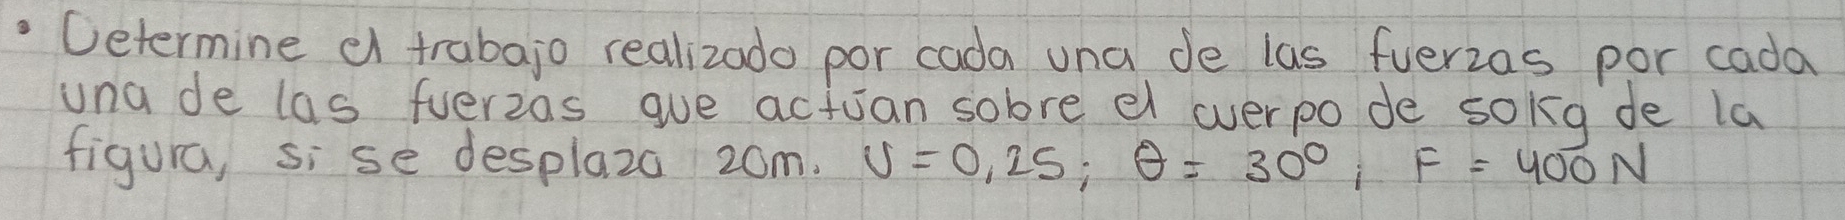 • Determine el trabajo realizado por cada una de las fuerzas por cada
una de las fuerzas que actúan sobre el cuerpo de 50kg de la
figura, si se desplaza 20m. U = 0,25; θ = 30°; F = 400N